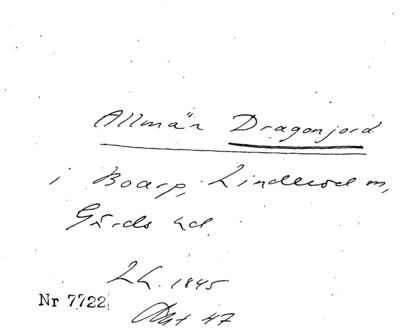 Allmän Dragonjord
i Boarp, Linderöd m,
Gärds hd.
LL. 1845
Nr 7722
Akt 47